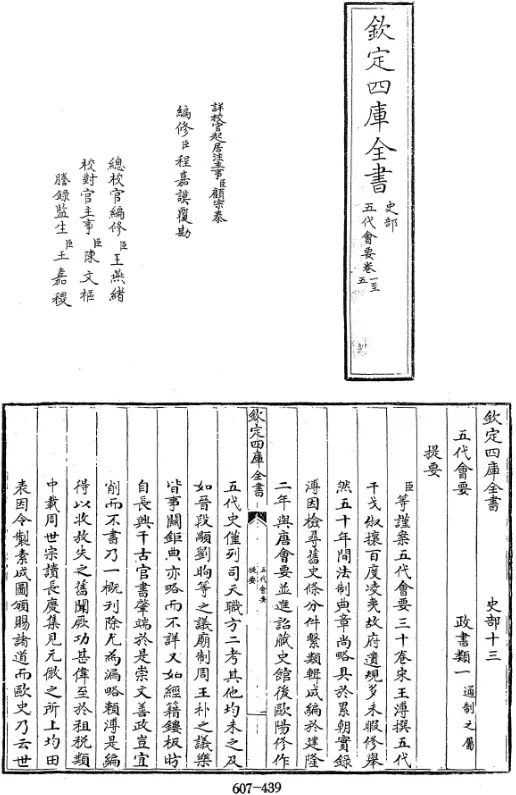 欽定四庫全書
史部
五代會要卷一至五
詳校官起居注主事臣顧宗泰
編修臣程嘉謨覆勘
總校官編修臣王燕緒
校對官主事臣陳文樞
謄錄監生臣王嘉稷
欽定四庫全書 史部十三
五代會要 政書類一通制之屬
提要
臣等謹案五代會要三十卷宋王溥撰五代
干戈俶擾百度凌夷故府遺規多未暇修舉
然五十年間法制典章尚略具於累朝實錄
溥因檢尋舊史條分件繫類輯成編於建隆
二年與唐會要並進詔藏史館後歐陽修作
欽定四庫全書
五代會要
提要
五代史僅列司天職方二考其他均未之及
如晉段顒劉昫等之議廟制周王朴之議樂
皆事關鉅典亦略而不詳又如經籍鏤板昉
自長興千古官書肇端於是崇文善政豈宜
削而不書乃一概刊除尤為漏略賴溥是編
得以收放失之舊聞厥功甚偉至於租稅類
中載周世宗讀長慶集見元微之所上均田
表因令製素成圖頒賜諸道而歐史乃云世
607-439